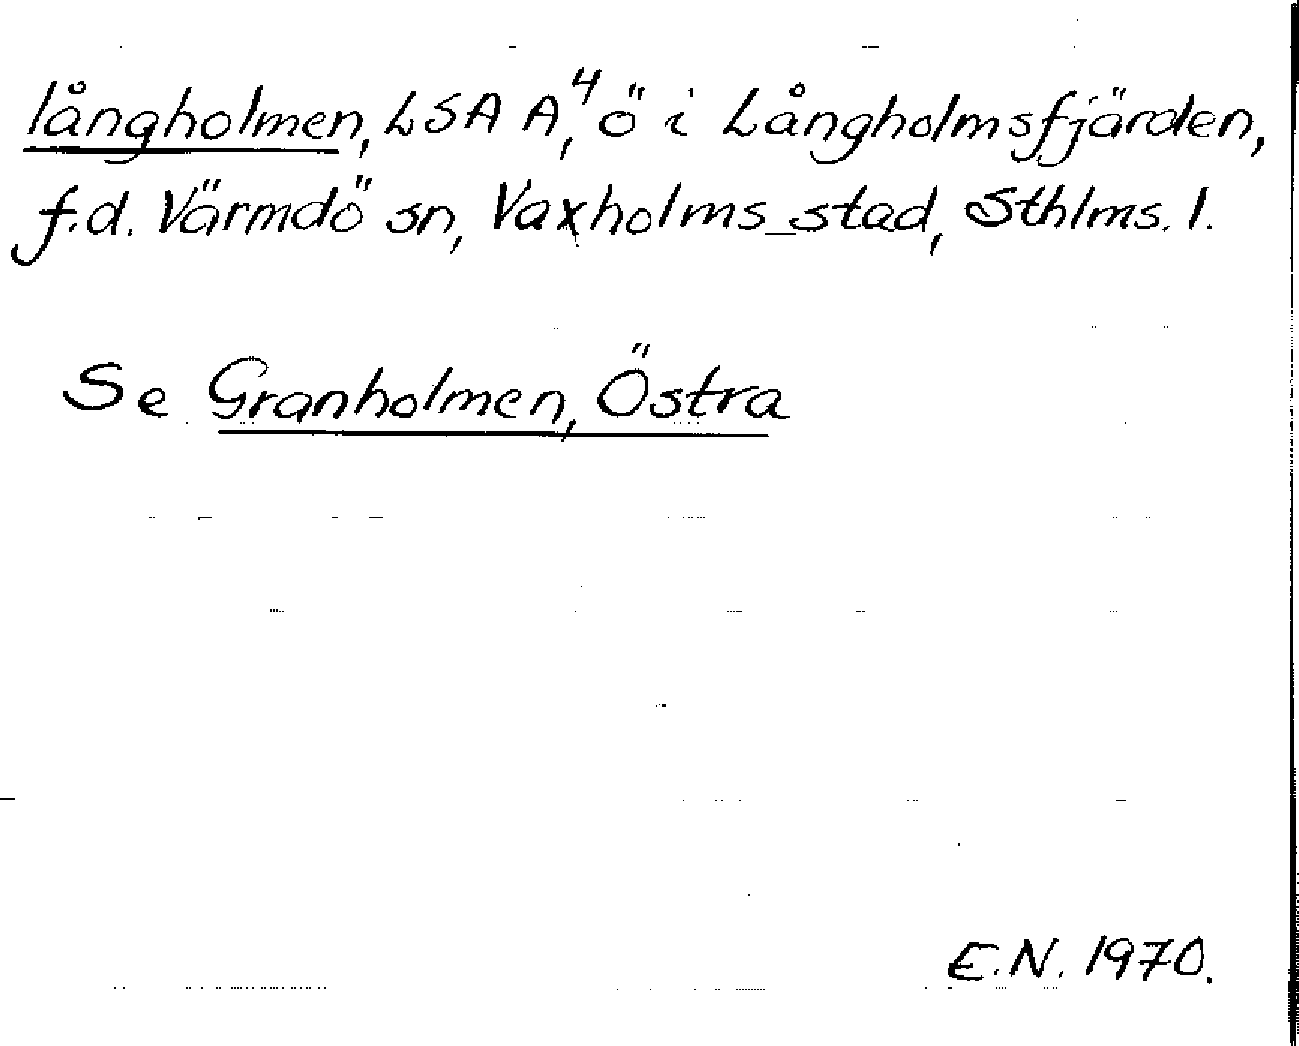 långholmen, LSA A,⁴ ö i Långholmsfjärden,
f.d. Värmdö sn, Vaxholms stad, Sthlms. l.
Se Granholmen, Östra
E.N. 1970.